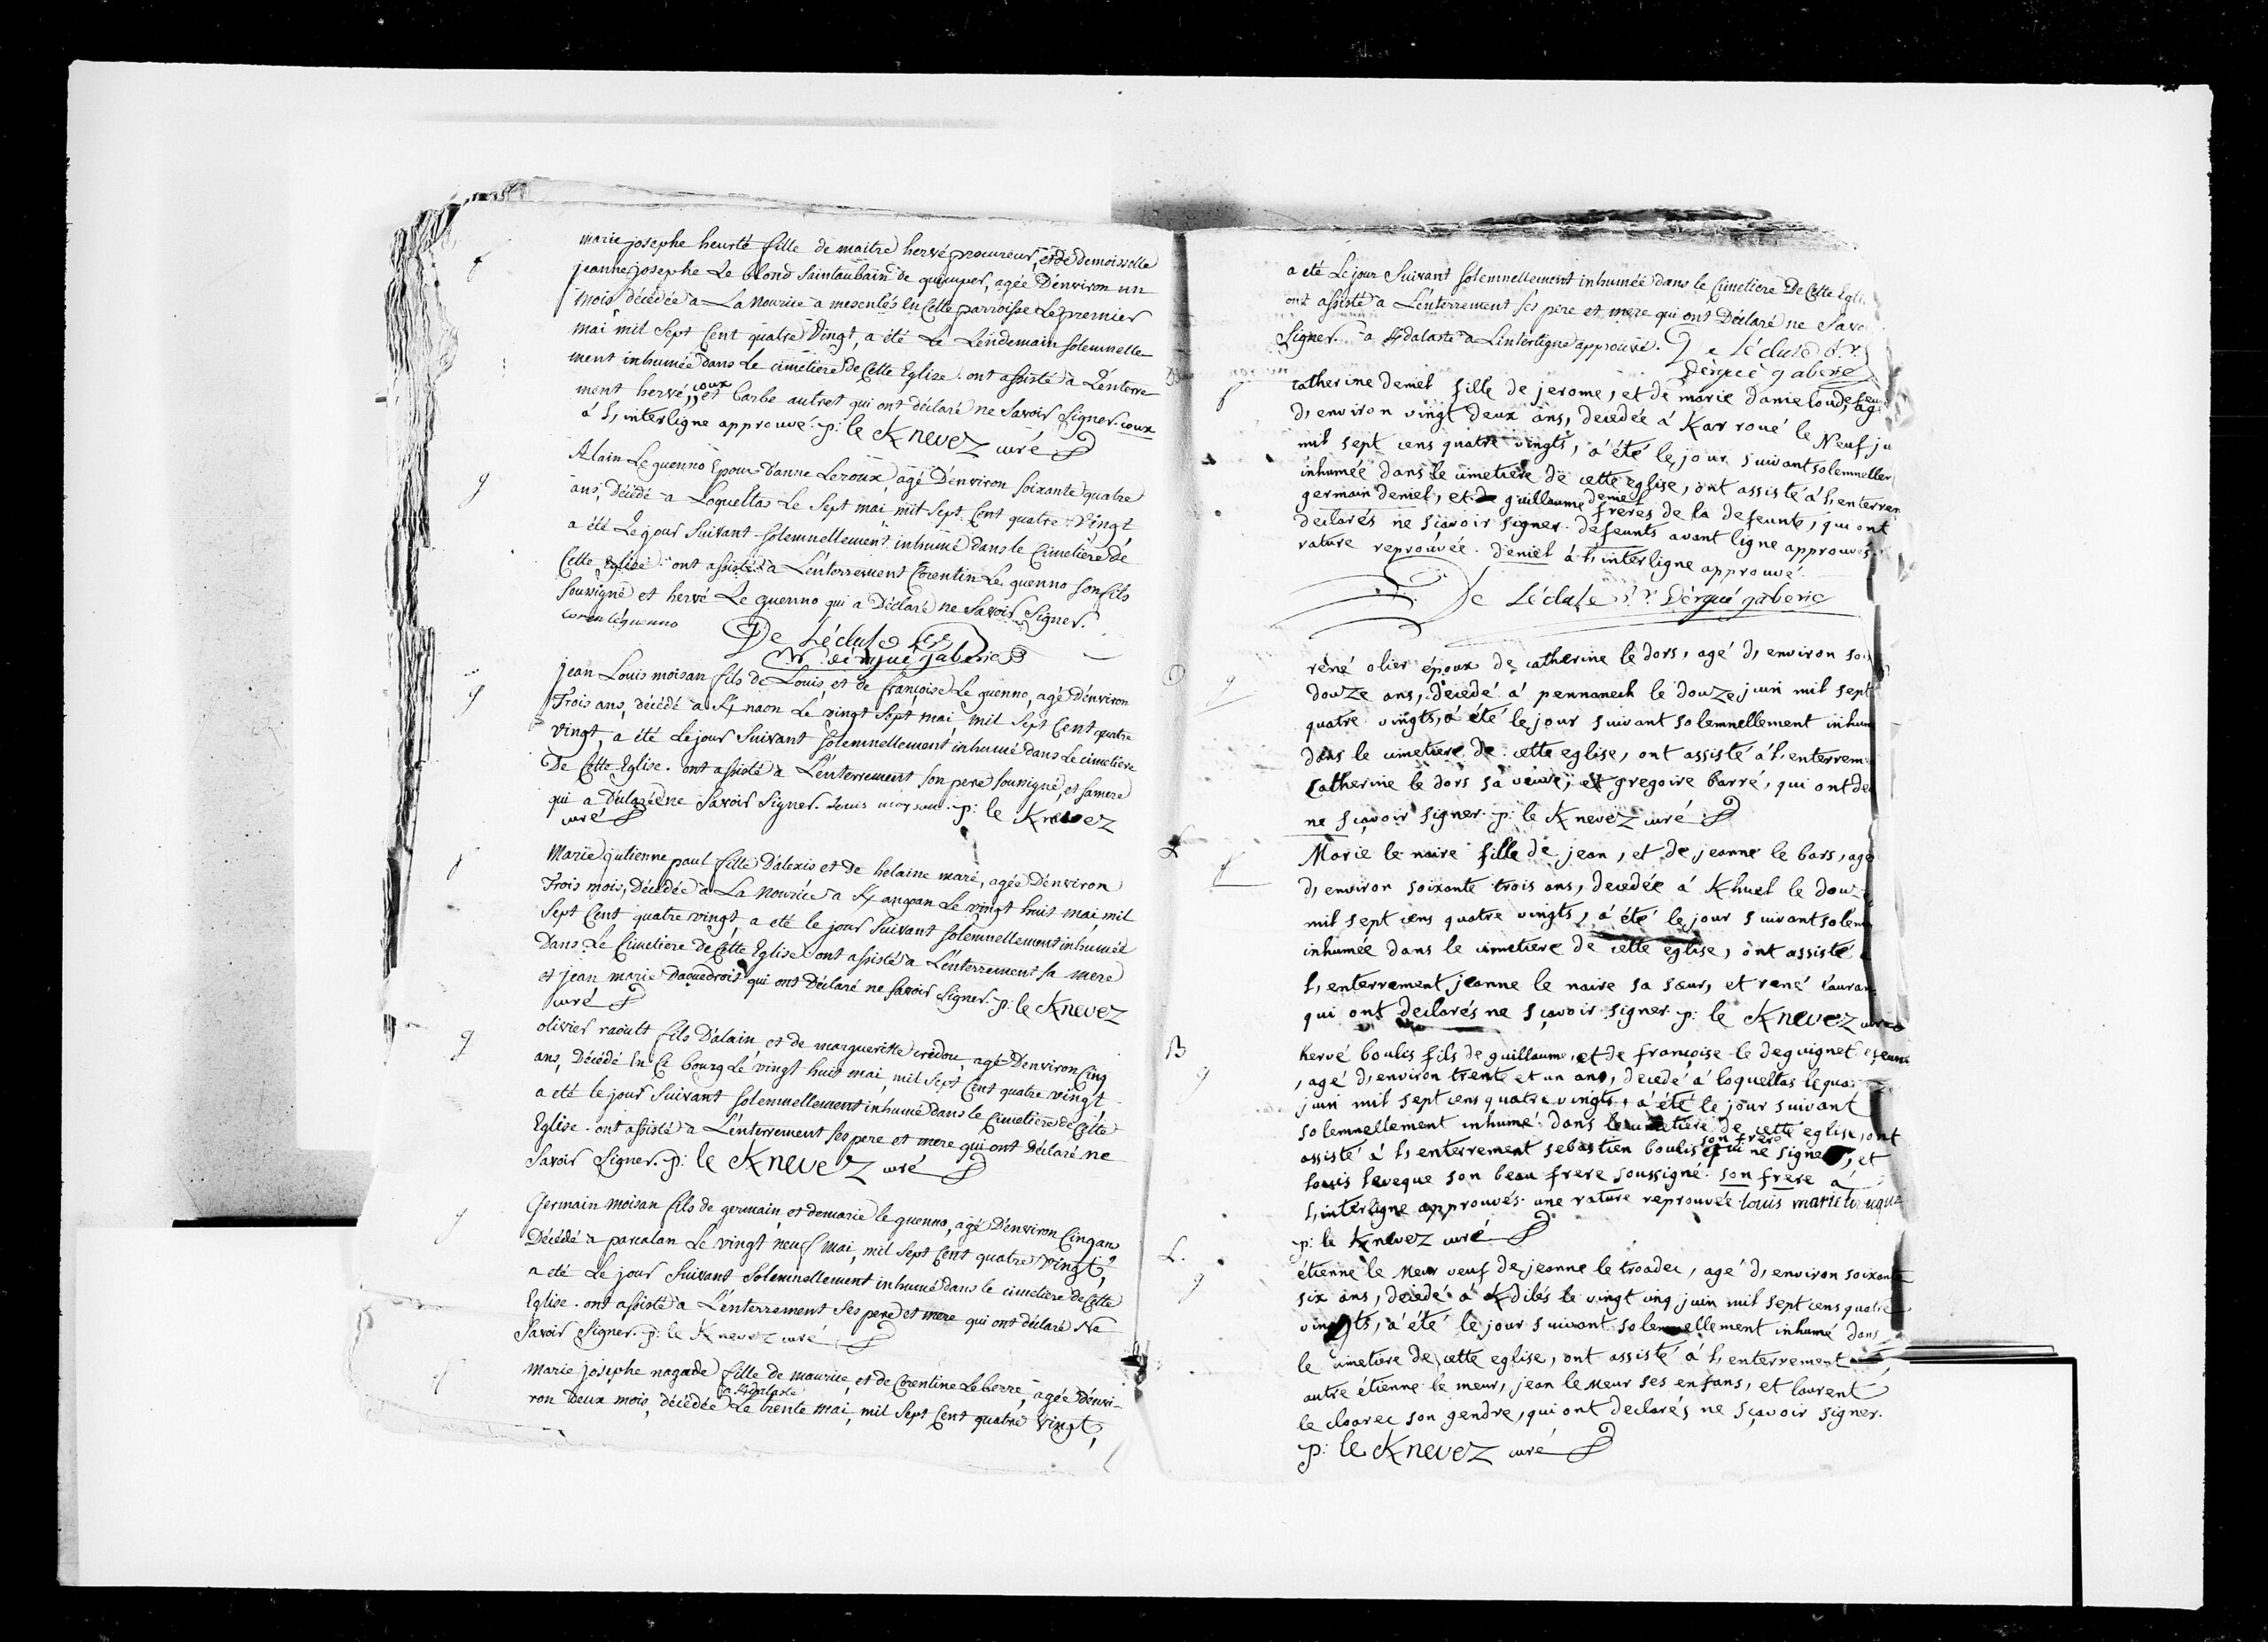 f
marie josephe heurté fille de maitre hervé procureur, et de demoiselle
jeanne josephe Le blond Saintaubain de quimper, agée D'environ un
mois décédée a La Nourice a mesenlés en Cette parroisse Le premier
mai mil Sept Cent quatre Vingt, a été Le Lendemain solemnelle-
ment inhumée dans Le cimetiere de Cette Eglise. ont assisté a L'enterre
coux
ment hervé, et barbe autret qui ont déclaré ne Savoir Signer. coux
á l'interligne approuvé. p: le Knevez curé
g
Alain Le guenno Epoux d'anne Leroux, agé D'environ soixante quatre
ans, Décédé a Loqueltas Le Sept mai mil Sept Cent quatre Vingt
a été Le jour Suivant solemnellement inhumé dans le Cimetiere de
Cette Eglise. ont assisté a L'enterrement Corentin Le guenno son fils
Soussigné et hervé Le guenno qui a Déclaré ne Savoir Signer.
coren leguenno
De Lécluse
dergué gaberic
g
jean Louis moisan fils de Louis, et de françoise Le guenno, agé D'environ
Trois ans, décédé a Knaon Le vingt Sept mai, mil Sept Cent quatre
Vingt, a été Le jour Suivant solemnellement inhumé dans Le cimetiere
De Cette Eglise. ont assisté a L'enterrement son pere soussigné, et sa mere
qui a Déclarée ne Savoir Signer. Louis moysan. p: le Knevez
curé
f
Marie julienne paul fille D'alexis et de helaine maré, agée D'environ
Trois mois, Décédée a La Nourice a Kangan Le vingt huit mai, mil
Sept Cent quatre vingt, a eté le jour Suivant solemnellement inhumée
Dans Le Cimetiere de Cette Eglise ont assisté a L'enterrement sa mere
et jean marie Daouedroit qui ont Déclaré ne savoir Signer. p: le Knevez
curé
g
olivier raoult fils D'alain et de margueritte credou, agé D'environ Cinq
ans, Décédé En Ce bourg Le vingt huit mai, mil Sept Cent quatre vingt
a eté le jour Suivant solemnellement inhumé dans le Cimetiere de Cette
Eglise. ont assisté a L'enterrement ses pere et mere qui ont Déclaré ne
Savoir Signer. p: le Knevez curé
g
Germain moisan fils de germain, et de marie le guenno, agé D'environ Cinq ans
Décédé a parcalan Le vingt neuf mai, mil Sept Cent quatre Vingt,
a eté Le jour Suivant Solemnellement inhumé dans le cimetiere de Cette
Eglise. ont assisté a L'enterrement Ses pere et mere qui ont déclaré Ne
Savoir Signer. p: le Knevez curé
f
Marie josephe nagade fille de maurice, et de Corentine Leberre, agée D'envi-
a Kdalaste
ron Deux mois, décédée Le trente mai, mil Sept Cent quatre Vingt,
a été Le jour Suivant solemnellement inhumée dans le Cimetiere De Cette Egli
ont assisté a L'enterrement ses pere et mere qui ont Déclaré ne Savo
Signer. a Kdalaste a L'interligne approuvé. De Lécluse
dergué gaberic
D
f
defeunts
catherine deniel fille de jerome, et de marie danielou, ag
d'environ vingt deux ans, decedée á Kar roué le Neuf ju
mil sept cens quatre vingts, á été le jour suivant solemnellem
inhumée dans le cimetiere de cette eglise, ont assisté á l'enterrem
deniel
germain deniel, et de guillaume freres de la defeunte, qui ont
declarés ne sçavoir signer. defeunts avant ligne approuvés
rature reprouvée. deniel á l'interligne approuvé.
De Lécluse r.r Dérgué gaberic
O
g
réné olier époux de catherine le dors, agé d'environ soi
douze ans, decedé á pennanech le douze juin mil sept
quatre vingts, á été le jour suivant solemnellement inhum
dans le cimetiere de cette eglise, ont assisté á l'enterreme
catherine le dors sa veuve, et gregoire barré, qui ont de
ne sçavoir signer. p: le Knevez curé
L
f
Marie le naire fille de jean, et de jeanne le bars, agé
d'environ soixante trois ans, decedée á Khuel le dou
mil sept cens quatre vingts, á été le jour suivant solem
inhumée dans le cimetiere de cette eglise, ont assisté
l'enterrement jeanne le naire sa sœur, et rené lauran
qui ont declarés ne sçavoir signer p: le Knevez curé
B
g
hervé boulis fils de guillaume, et de françoise le deguignet defeunts
, agé d'environ trente et un ans, decedé á loqueltas le qua
juin mil sept cens quatre vingts, á été le jour suivant
solemnellement inhumé dans le cimetiere de cette eglise, ont
son frere
assisté á l'enterrement sebastien boulis qui ne signe, et
louis leveque son beau frere soussigné. son frere á
l'interligne approuvés. une rature reprouvée. louis marie leveque
p: le Knevez curé
L.
g
étienne le Meur veuf de jeanne le troadec, agé d'environ soixante
six ans, decedé á Kdilés le vingt cinq juin mil sept cens quatre
vingts, á été le jour suivant solemnellement inhumé dans
le cimetiere de cette eglise, ont assisté á l'enterrement
autre étienne le meur, jean le Meur ses enfans, et laurent
le cloarec son gendre, qui ont declarés ne sçavoir signer.
p: le Knevez curé